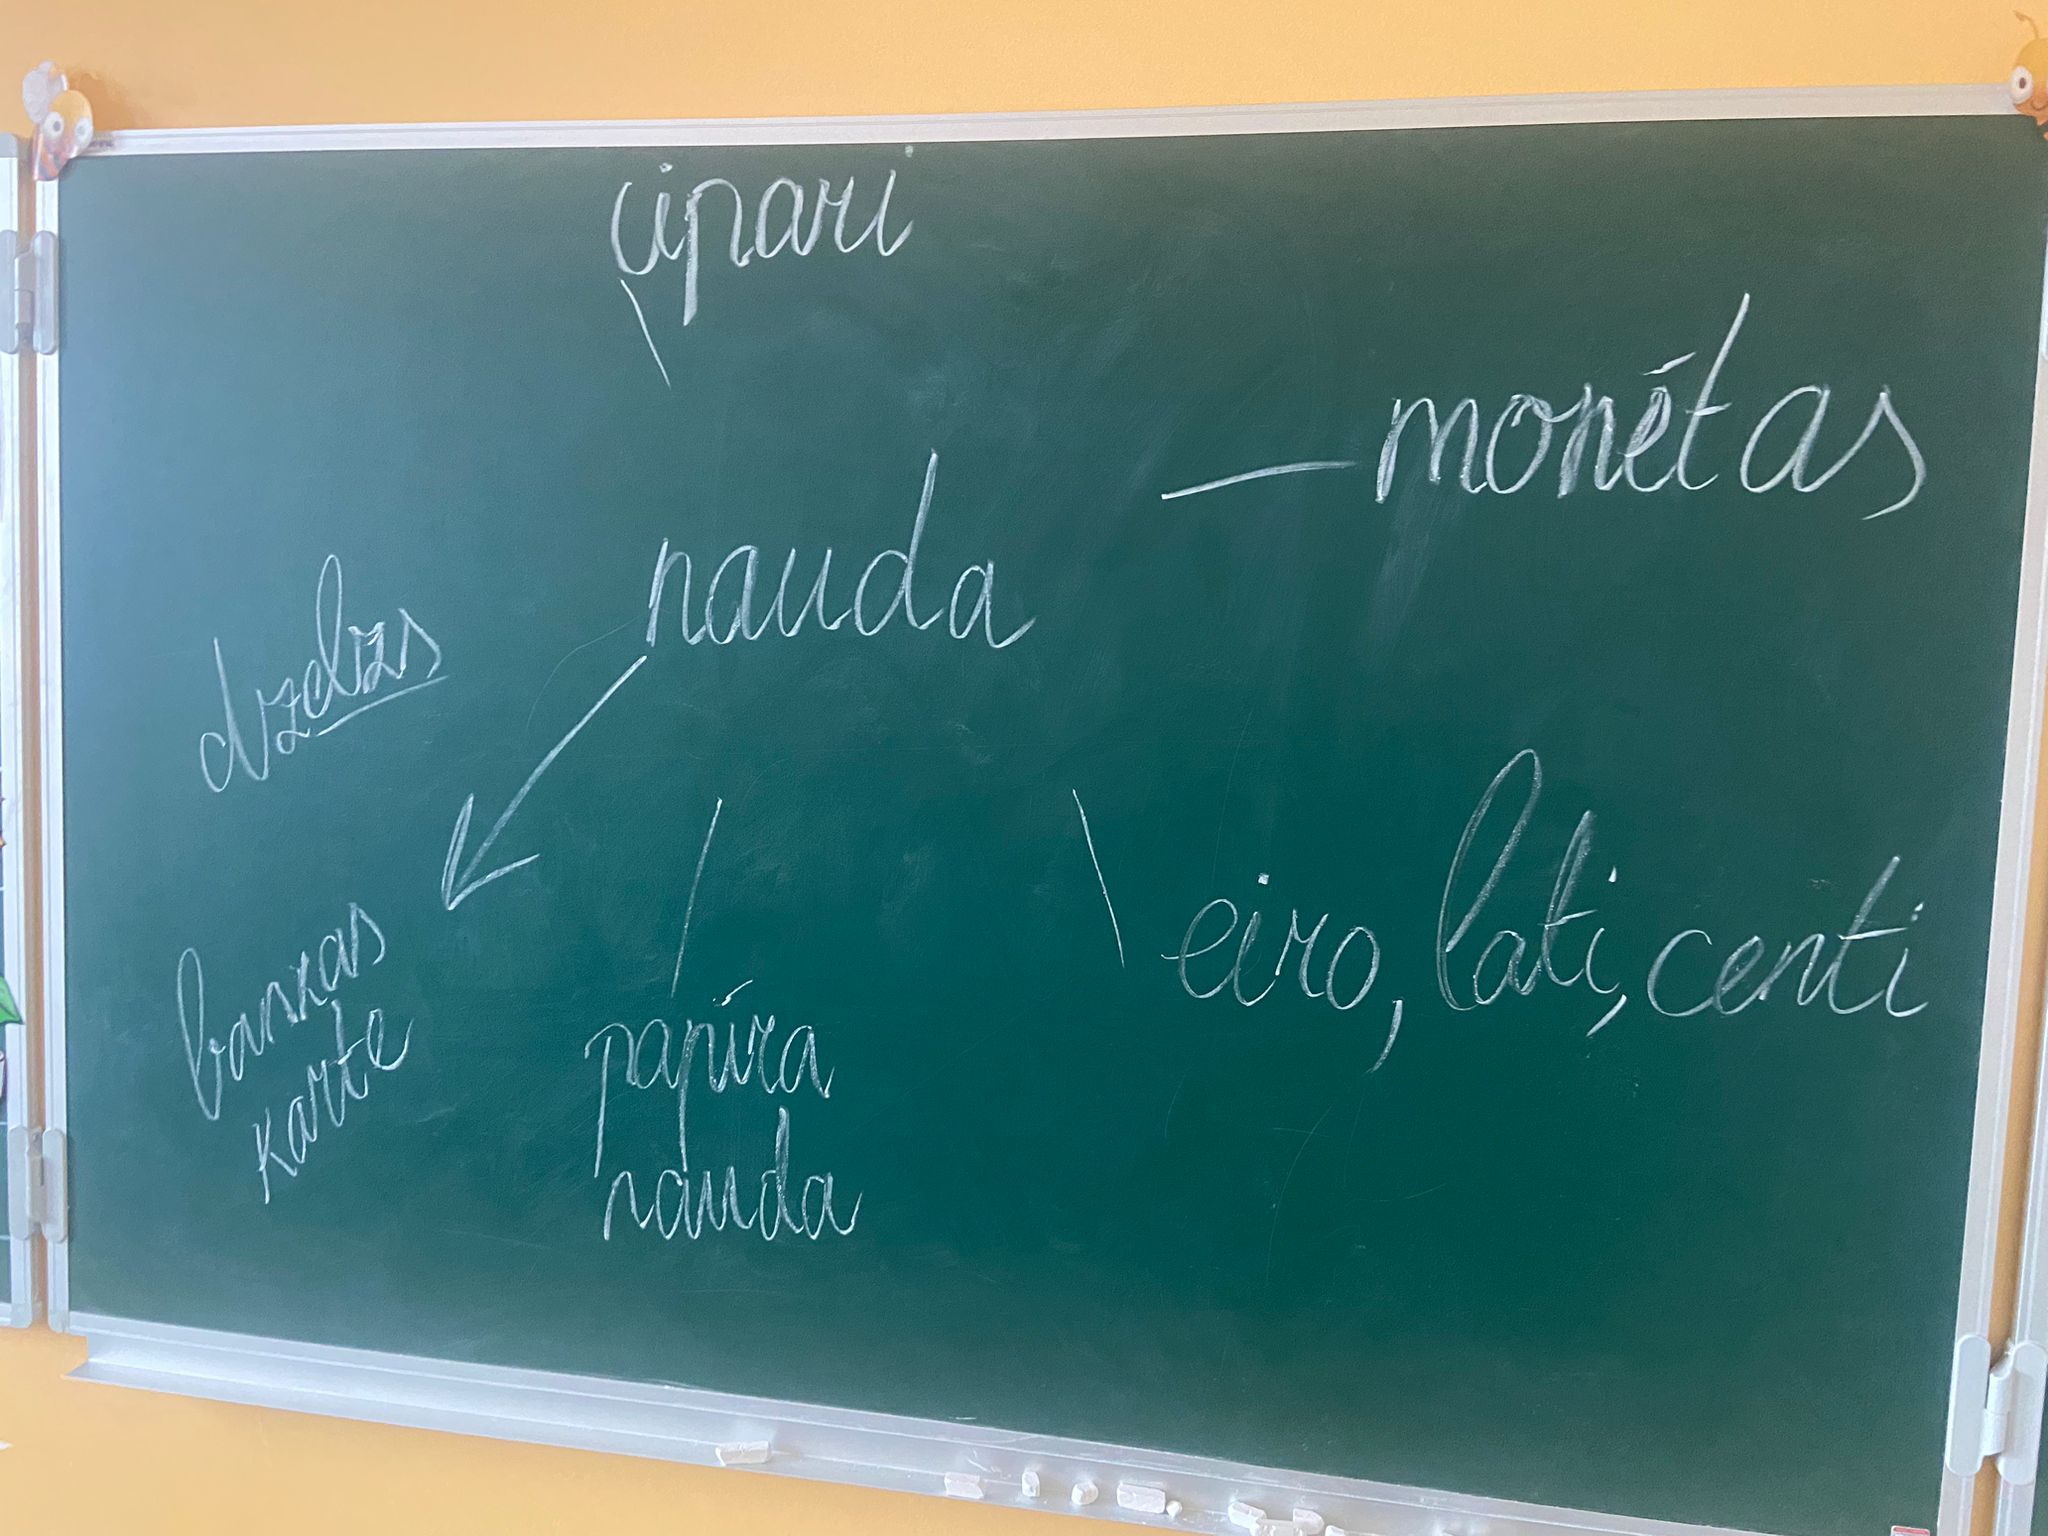 cipari
monētas
nauda
eiro, lati, centi
bankas
karte
papīra
nauda